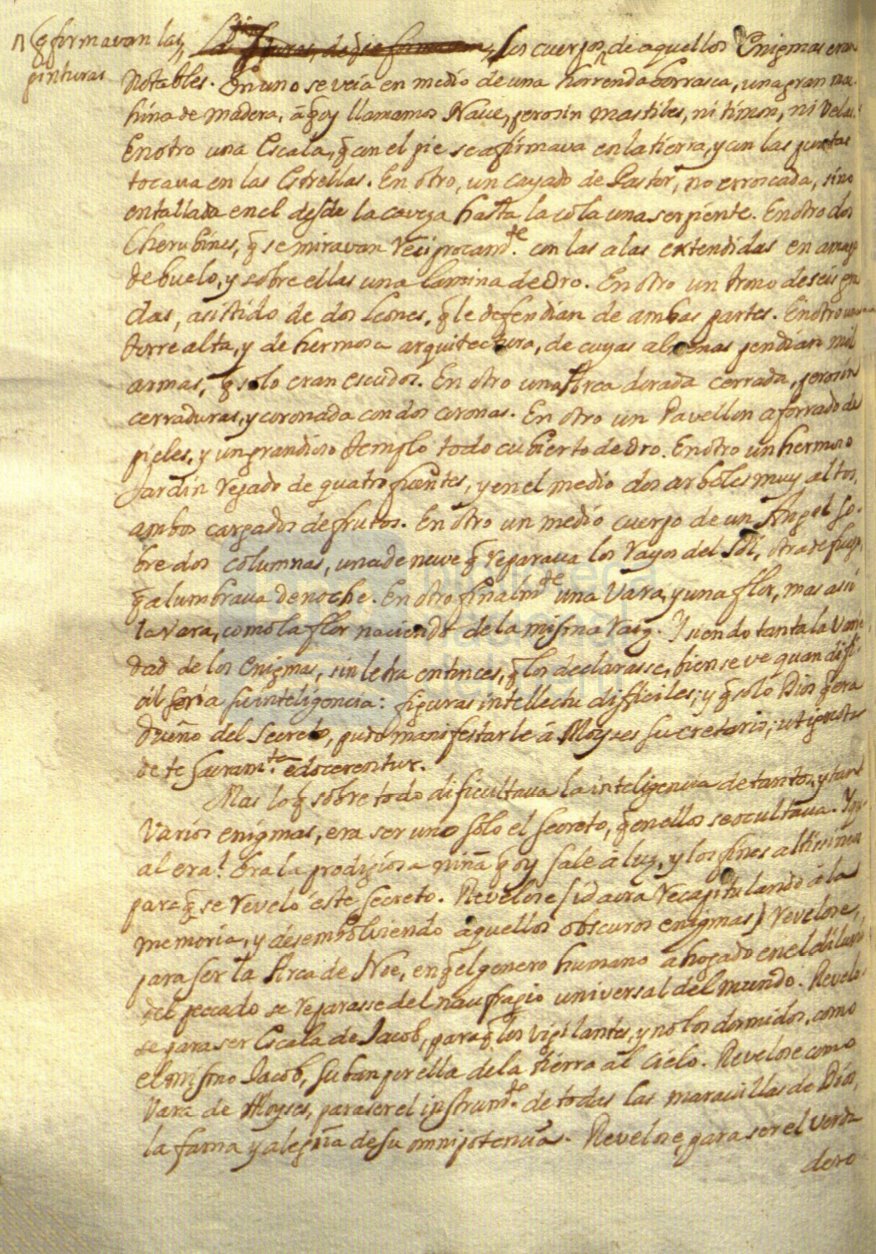 q̃ formavan las
pinturas
Los cuerpos de aquellos Enigmas eran
Notables. En uno se veia en medio de una horrenda borrasca, una gran ma-
hina de madera, á q̃ oy llamamos Nave, pero sin mastiles, ni timon, ni velas.
En otro una Escala, q̃ con el pie se afirmava en la tierra, y con las puntas
tocava en las Estrellas. En otro, un cayado de Pastor, no enroscada, sino
entallada en el desde la caveza hasta la cola una serpiente. En otro dos
Cherubines, q̃ se miravan reciprocam.te con las alas extendidas en amago
de buelo, y sobre ellas una lamina de Oro. En otro un trono de seis gra-
das, asistido de dos leones, q̃ le defendian de ambas partes. En otro una
torre alta, y de hermosa arquitectura, de cuyas almenas pendian mil
armas, q̃ solo eran escudos. En otro una Arca dorada cerrada, pero sin
cerraduras, y coronada con dos coronas. En otro un Pavellon aforrado de
pieles, y un grandioso templo todo cubierto de Oro. En otro un hermoso
Jardin regado de quatro fuentes, y en el medio dos arboles muy altos,
ambos cargados de frutos. En otro un medio cuerpo de un Angel so-
bre dos columnas, una de nuve q̃ reparava los rayos del Sol, otra de fuego
q̃ alumbrava de noche. En otro finalm.te una Vara, y una flor, mas assi
la vara, como la flor naciendo de la misma raiz. Y siendo tanta la varie-
dad de los Enigmas, sin letra entonces, q̃ los declarasse, bien se ve quan difi-
cil seria su inteligencia: figuras intellectu difficiles; y q̃ solo Dios q̃ era
Dueño del Secreto, pudo manifestarle á Moyses su secretario; ut
de te Sacram.to edocerentur.
Mas lo q̃ sobre todo dificultava la inteligencia de tantos, y tan
varios enigmas, era ser uno solo el secreto, q̃ en ellos se ocultava. Y qu-
al era? Era la prodigiosa niña q̃ oy sale a luz, y los fines altissimos
para q̃ se reveló este secreto. Revelose (id aora recapitulando á la
memoria, y desembolviendo aquellos obscuros enigmas) revelose,
para ser la Arca de Noe, en q̃ el genero humano ahogado en el diluvio
del peccado se reparasse del naufragio universal del mundo. Revelo-
se para ser Escala de Jacob, para q̃ los vigilantes, y no los dormidos, como
el mismo Jacob, suban por ella de la tierra al cielo. Revelose como
Vara de Moyses, para ser el instrum.to de todas las maravillas de Dios,
la fama y alegria de su omnipotencia. Revelose, para ser el verda-
dero